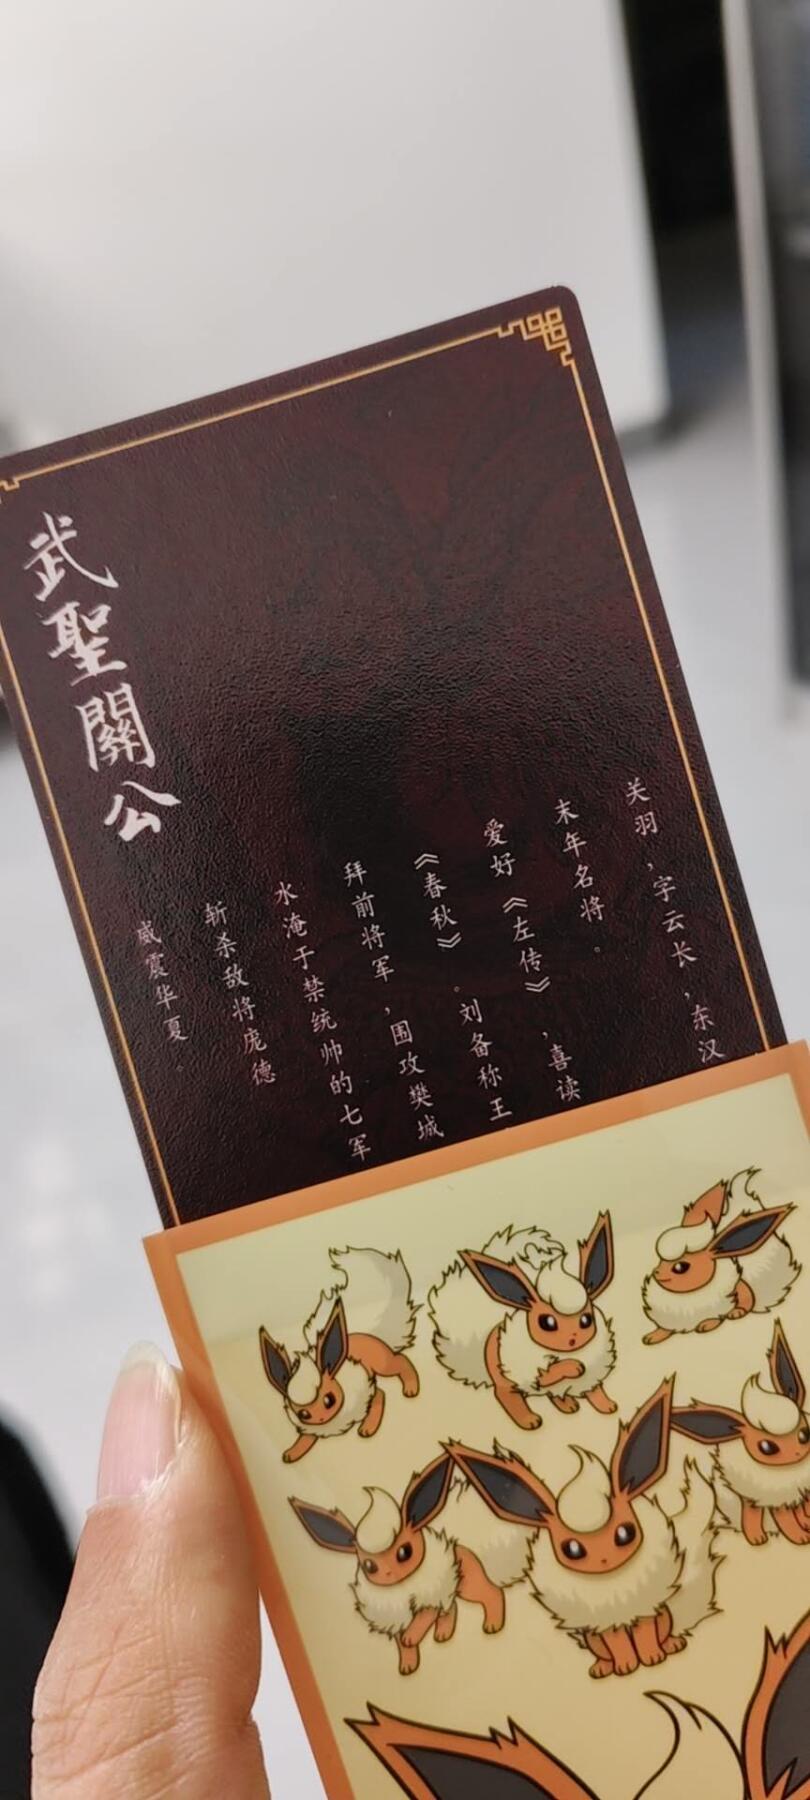 武聖關公
关羽，字云长，东汉
末年名将。
爱好《左传》，喜读
《春秋》。刘备称王
拜前将军，围攻樊城
水淹于禁统帅的七军
斩杀敌将庞德
威震华夏。